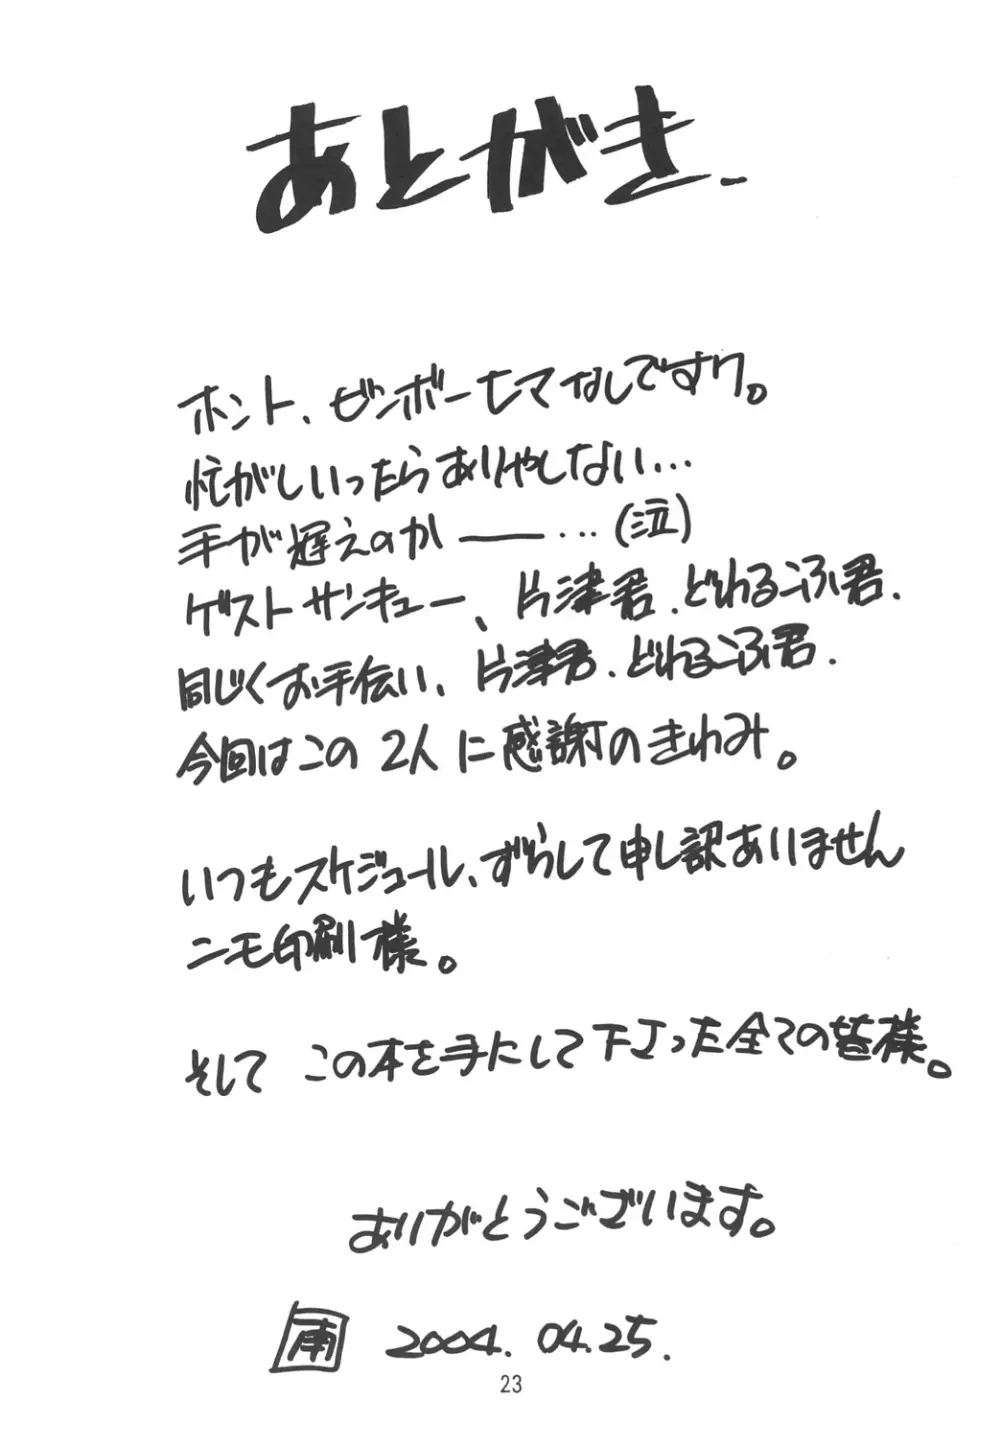 あとがき
ホント、ビンボーヒマなしですワ。
忙がしいったらありゃしない…
手が遅えのか――…(泣)
ゲストサンキュー、片津君.どわるこふ君.
同じくお手伝い、片津君.どわるこふ君.
今回はこの2人に感謝のきわみ。
いつもスケジュール、ずらして申し訳ありません
ニモ印刷様。
そして この本を手にして下さった全ての皆様。
ありがとうございます。
2004.04.25.
23